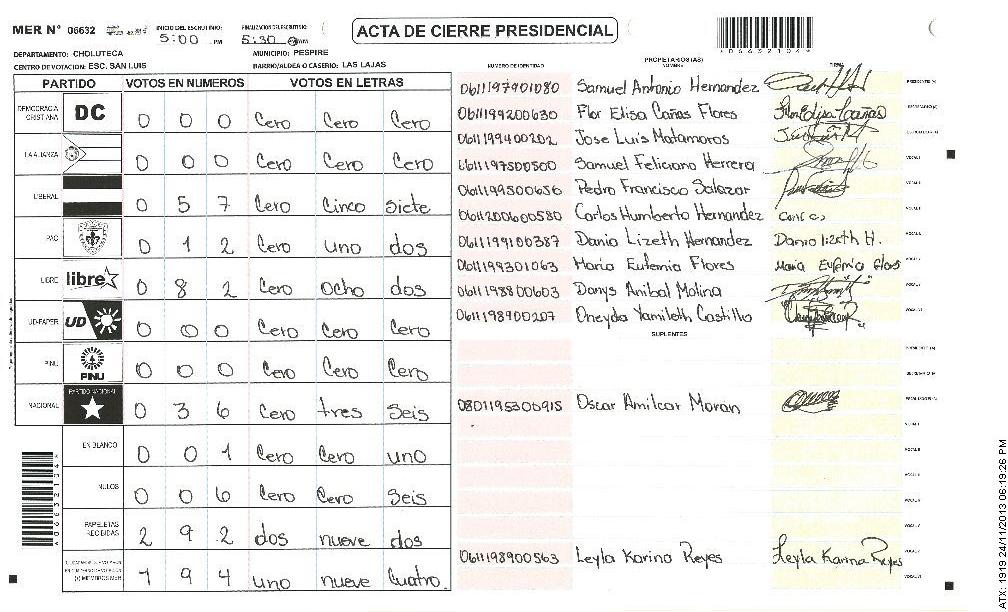 MER N° 06632 INICIO DEL ESCRUTINIO: 5:00 PM FINALIZACION DEL ESCRUTINIO: 5:30 PM
ACTA DE CIERRE PRESIDENCIAL
DEPARTAMENTO: CHOLUTECA MUNICIPIO: PESPIRE
CENTRO DE VOTACION: ESC. SAN LUIS BARRIO/ALDEA O CASERIO: LAS LAJAS
PARTIDO VOTOS EN NUMEROS VOTOS EN LETRAS
DEMOCRACIA CRISTIANA DC 0 0 0 Cero Cero Cero
LA ALIANZA 0 0 0 Cero Cero Cero
LIBERAL 0 5 7 Cero Cinco Siete
PAC 0 1 2 Cero uno dos
LIBRE libre 0 8 2 Cero ocho dos
UD-FAPER UD 0 0 0 Cero Cero Cero
PINU PINU 0 0 0 Cero Cero Cero
NACIONAL PARTIDO NACIONAL 0 3 6 Cero tres Seis
EN BLANCO 0 0 1 Cero Cero uno
NULOS 0 0 6 Cero Cero Seis
PAPELETAS RECIBIDAS 2 9 2 dos nueve dos
1 9 4 uno nueve Cuatro
PROPIETARIOS(AS)
NUMERO DE IDENTIDAD NOMBRE FIRMA
0611197901080 Samuel Antonio Hernandez
0611199200630 Flor Elisa Cañas Flores Flor Elisa Cañas
0611199400202 Jose Luis Matamoros
0611197500500 Samuel Feliciano Herrera
0611199500656 Pedro Francisco Salazar
0611200600580 Carlos Humberto Hernandez
0611199100387 Dania Lizeth Hernandez Dania lizeth H.
0611199301063 Maria Eufemia Flores Maria Eufemia flores
0611198800603 Danys Anibal Molina
0611198900207 Oneyda Yamileth Castillo
SUPLENTES
0801195300915 Oscar Amilcar Moran
0611198900563 Leyla Karina Reyes Leyla Karina Reyes
ATX: 1919 24/11/2013 06:19:26 PM